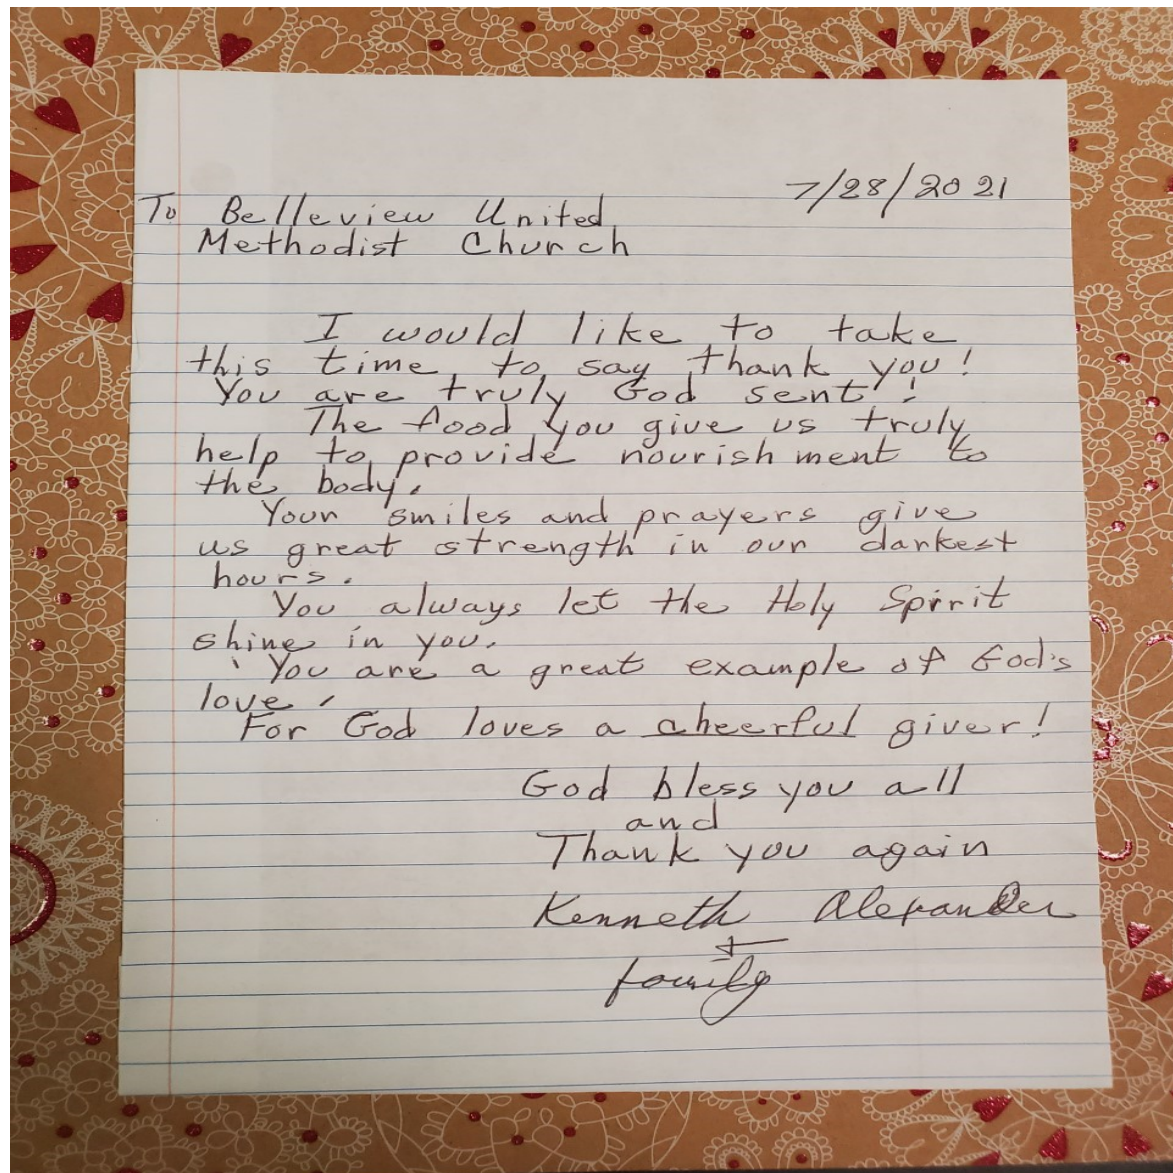 7/28/2021
To Belleview United
Methodist Church
I would like to take
this time to say thank you!
You are truly God sent!
The food you give us truly
help to provide nourishment to
the body.
Your smiles and prayers give
us great strength in our darkest
hours.
You always let the Holy Spirit
shine in you.
You are a great example of God's
love.
For God loves a cheerful giver!
God bless you all
and
Thank you again
Kenneth Alexander
+
family